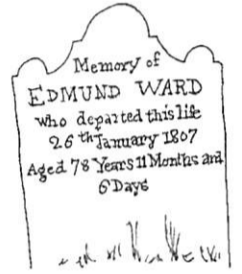 Memory of
EDMUND WARD
who departed this life
26th January 1807
Aged 78 Years 11 Months and
6 Days